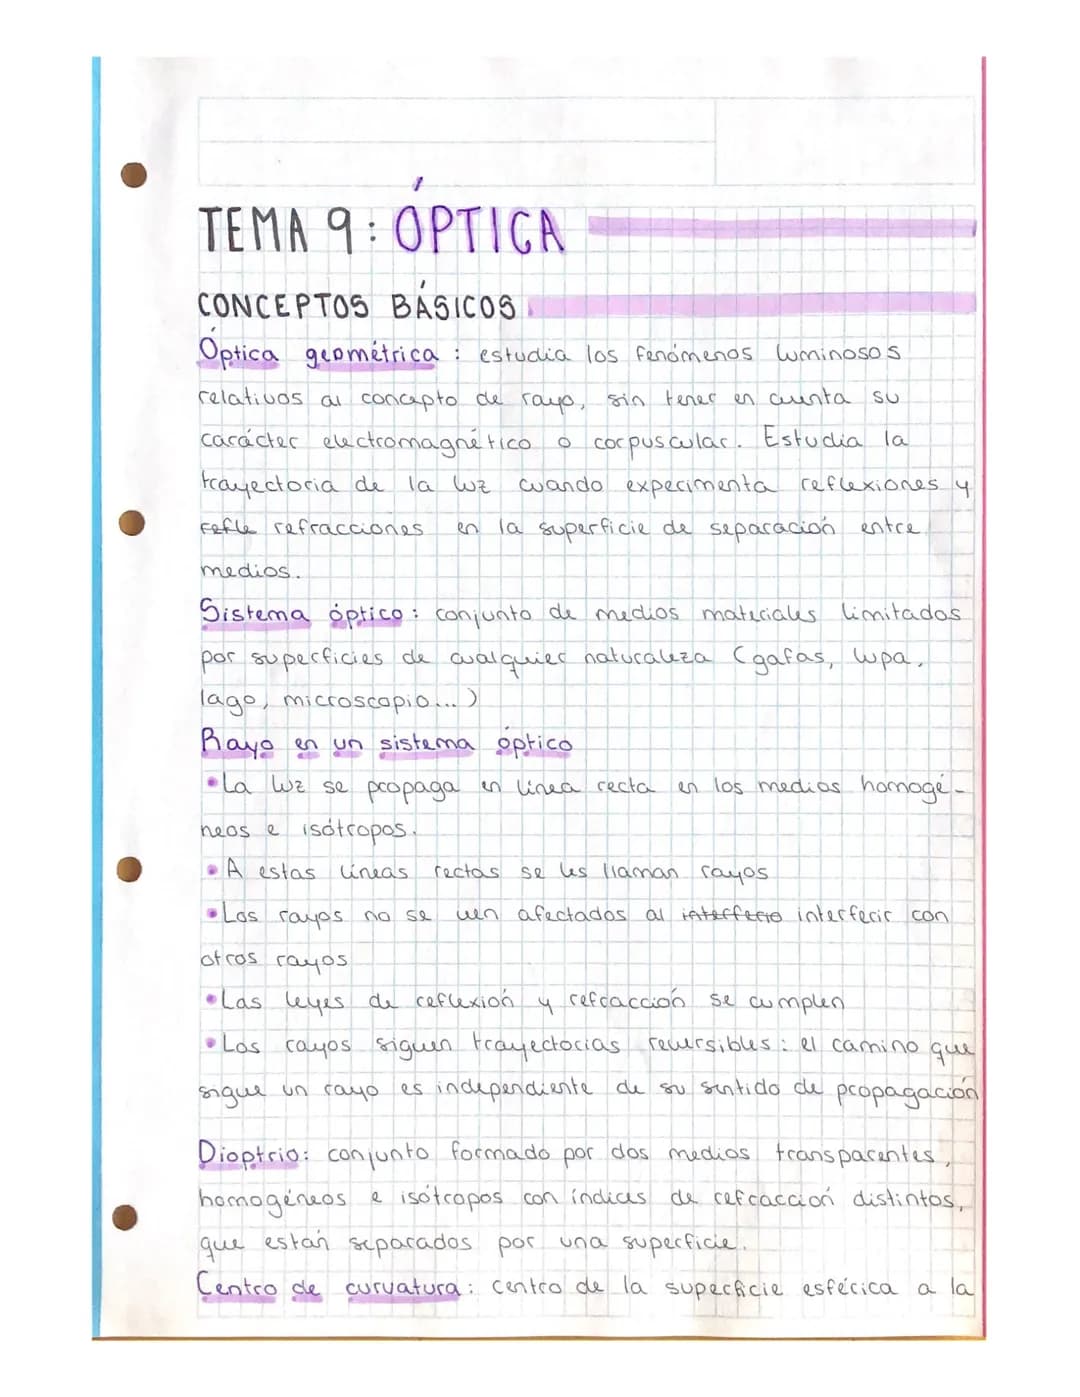 TEMA 9: ÓPTICA
CONCEPTOS BÁSICOS
Óptica geométrica : estudia los fenómenos luminosos
relativos al concepto de rayo, sin tener en cuenta su
carácter electromagnético o corpuscular. Estudia la
trayectoria de la luz cuando experimenta reflexiones y
refle refracciones en la superficie de separación entre
medios.
Sistema óptico : conjunto de medios materiales limitados
por superficies de cualquier naturaleza (gafas, lupa,
lago, microscopio...)
Rayo en un sistema óptico
•La luz se propaga en línea recta en los medios homogé-
neos e isótropos.
•A estas líneas rectas se les llaman rayos
•Los rayos no se ven afectados al interferio interferir con
otros rayos
•Las leyes de reflexión y refracción se cumplen
•Los rayos siguen trayectorias reversibles : el camino que
sigue un rayo es independiente de su sentido de propagación
Dioptrio: conjunto formado por dos medios transparentes,
homogéneos e isótropos con índices de refracción distintos,
que están separados por una superficie.
Centro de curvatura : centro de la superficie esférica a la